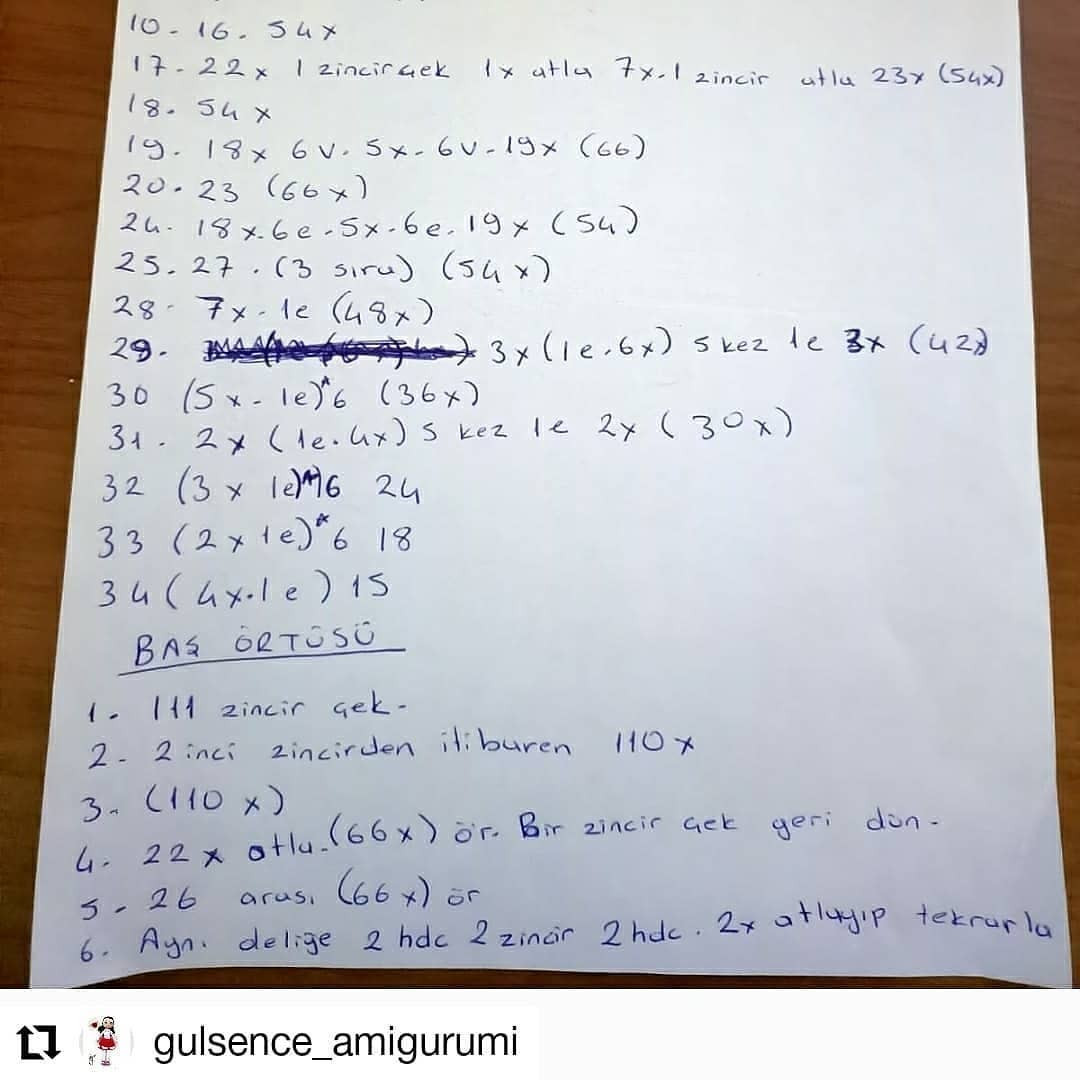 10- 16. 54x
17- 22x 1 zincir çek 1x atla 7x.1 zincir atla 23x (54x)
18. 54x
19. 18x 6v. 5x- 6v-19x (66)
20. 23 (66x)
24. 18x.6e.5x.6e.19x (54)
25.27. (3 sıra) (54x)
28- 7x-1e (48x)
29. 3x(1e.6x) 5 kez 1e 3x (42x)
30 (5x-1e)*6 (36x)
31. 2x (1e.4x) 5 kez 1e 2x (30x)
32 (3x 1e)*6 24
33 (2x1e)*6 18
34 (4x.1e) 15
BAŞ ÖRTÜSÜ
1. 111 zincir çek-
2. 2 inci zincirden itibaren 110x
3. (110x)
4. 22x atla.(66x) ör. Bir zincir çek geri dön.
5. 26 arası (66x) ör
6. Aynı deliğe 2 hdc 2 zincir 2 hdc. 2x atlayıp tekrarla
gulsence_amigurumi